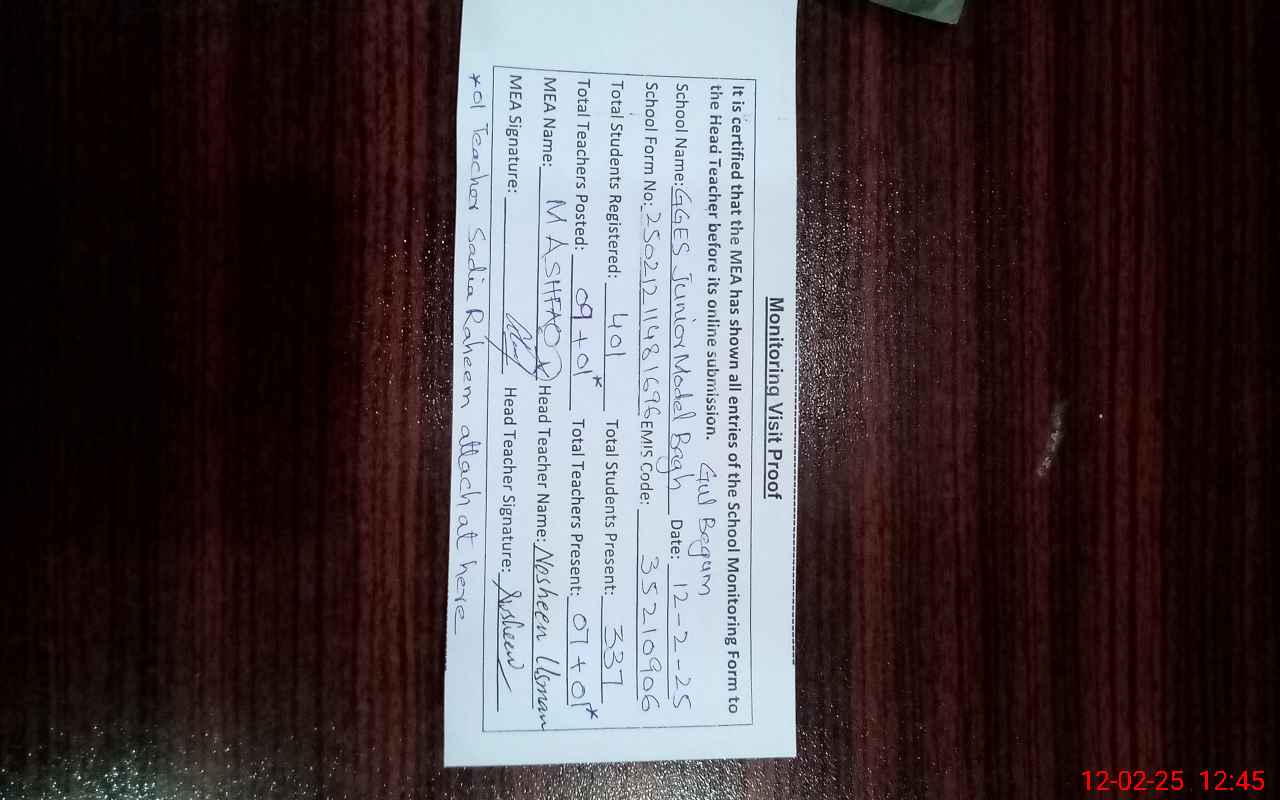 Monitoring Visit Proof
It is certified that the MEA has shown all entries of the School Monitoring Form to
the Head Teacher before its online submission. Gul Begum
School Name: GGES Junior Model Bagh Date: 12-2-25
School Form No: 25021211481696 EMIS Code: 35210906
Total Students Registered: 401 Total Students Present: 337
Total Teachers Posted: 09+01* Total Teachers Present: 07+01*
MEA Name: M ASHFAQ Head Teacher Name: Nosheen Usman
MEA Signature: Head Teacher Signature: Nosheen
*01 Teacher Sadia Raheem attach at here
12-02-25 12:45